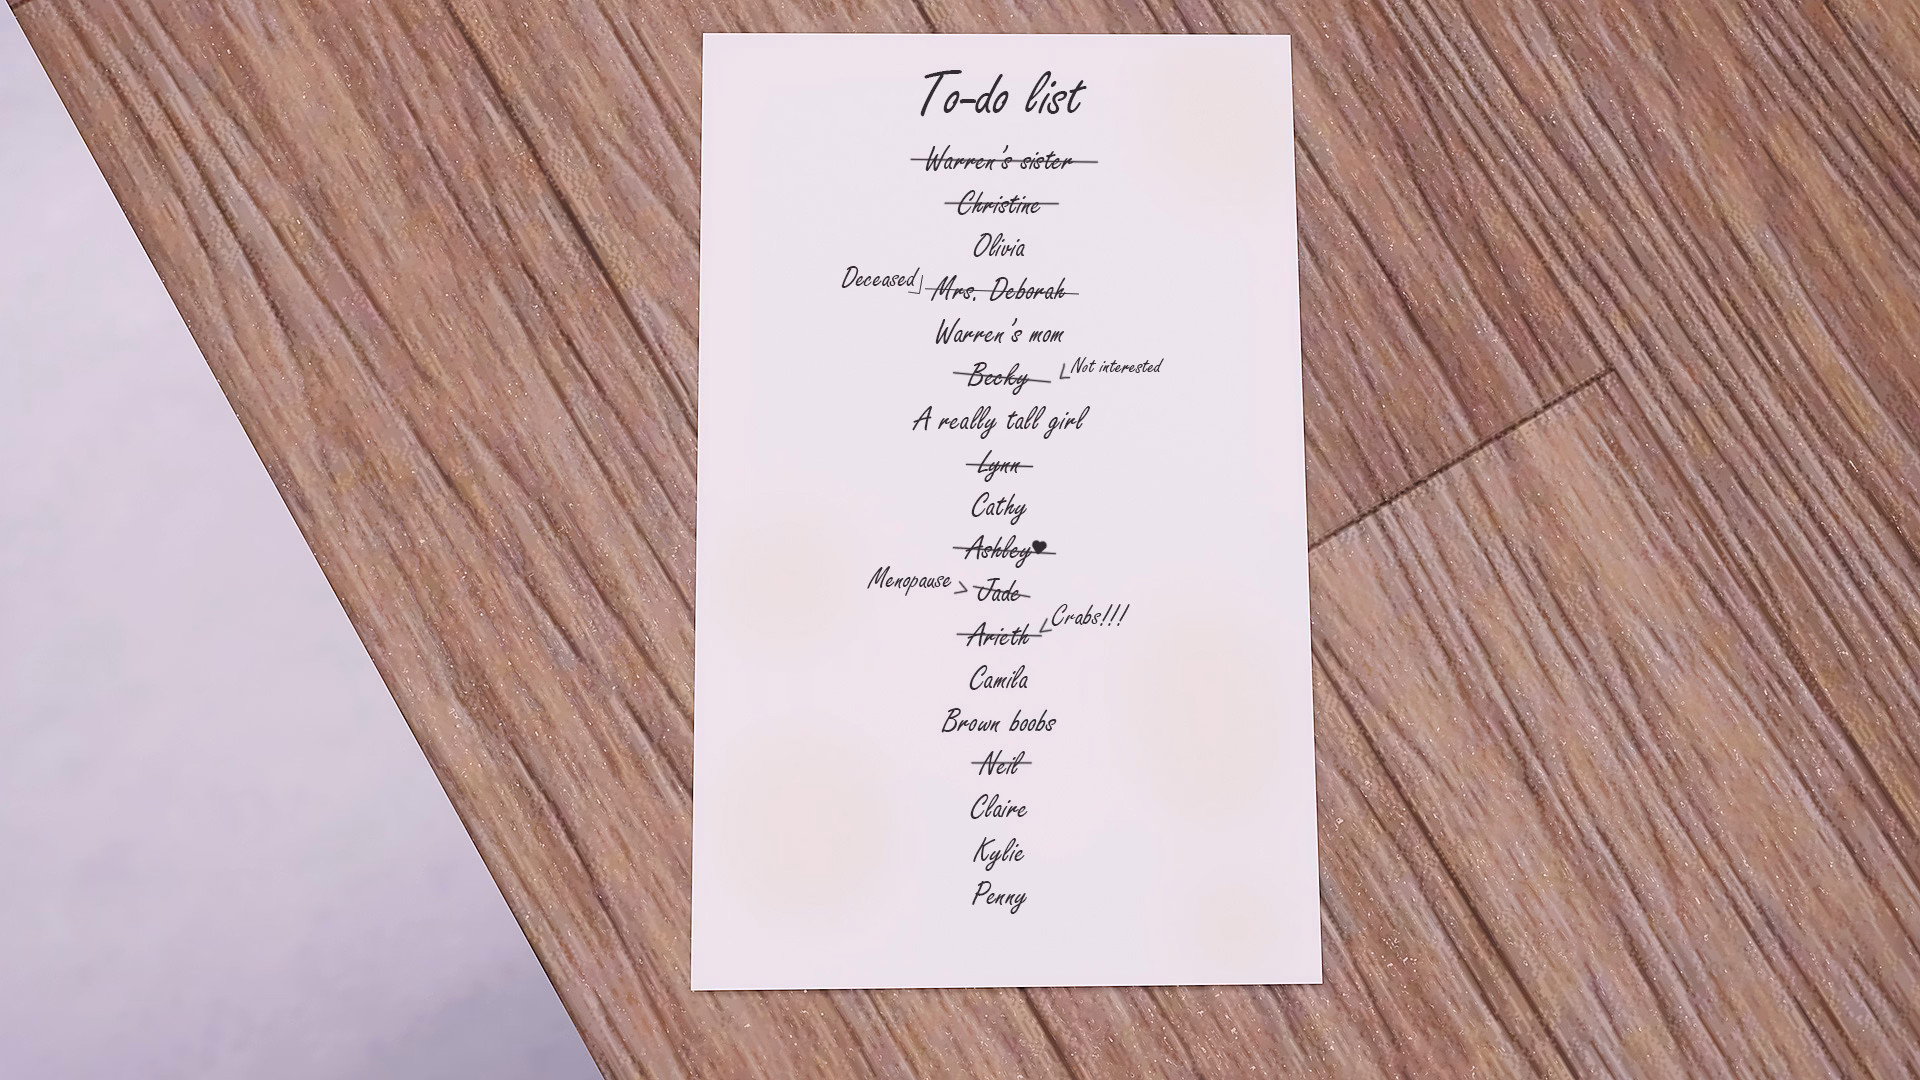 To-do list
Warren's sister
Christine
Olivia
Deceased Mrs. Deborah
Warren's mom
Becky Not interested
A really tall girl
Lynn
Cathy
Ashley♥
Menopause Jade
Crabs!!!
Arieth
Camila
Brown boobs
Neil
Claire
Kylie
Penny